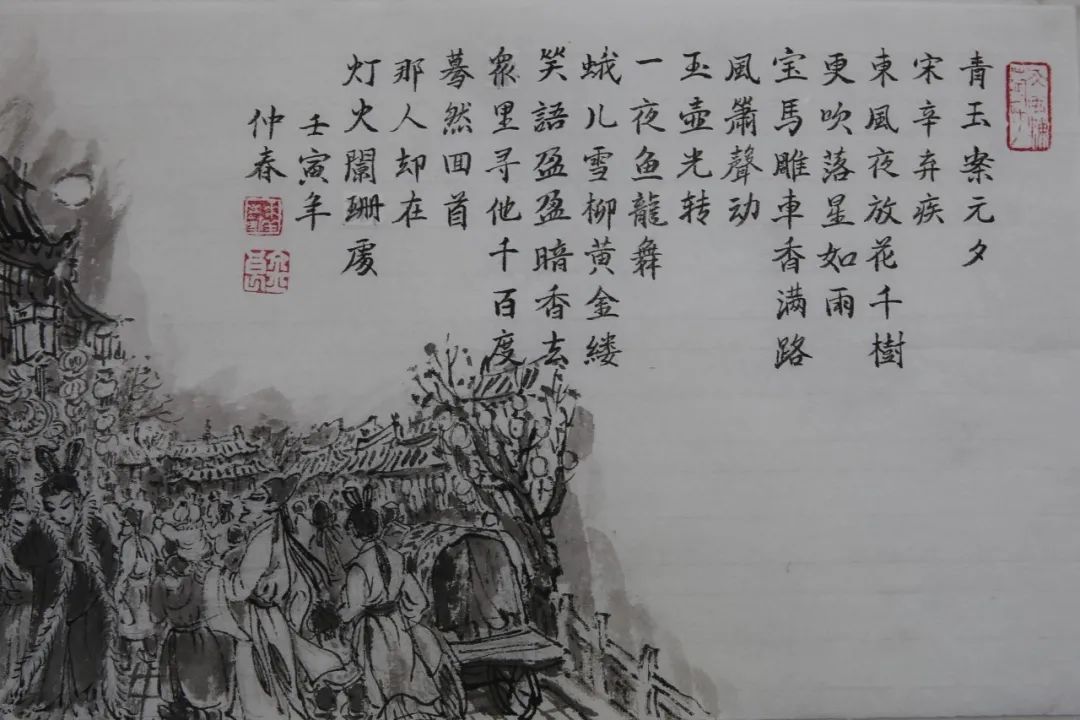 青玉案元夕
宋辛弃疾
東風夜放花千樹
更吹落星如雨
宝馬雕車香满路
風簫聲动
玉壶光转
一夜鱼龍舞
蛾儿雪柳黄金缕
笑語盈盈暗香去
衆里寻他千百度
蓦然回首
那人却在
灯火闌珊處
壬寅年
仲春